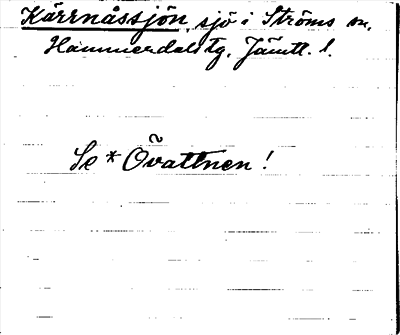 Kärrnåssjön, sjö i Ströms sn,
Hammerdals tg, Jämtl. l.
Se * Övattnen !